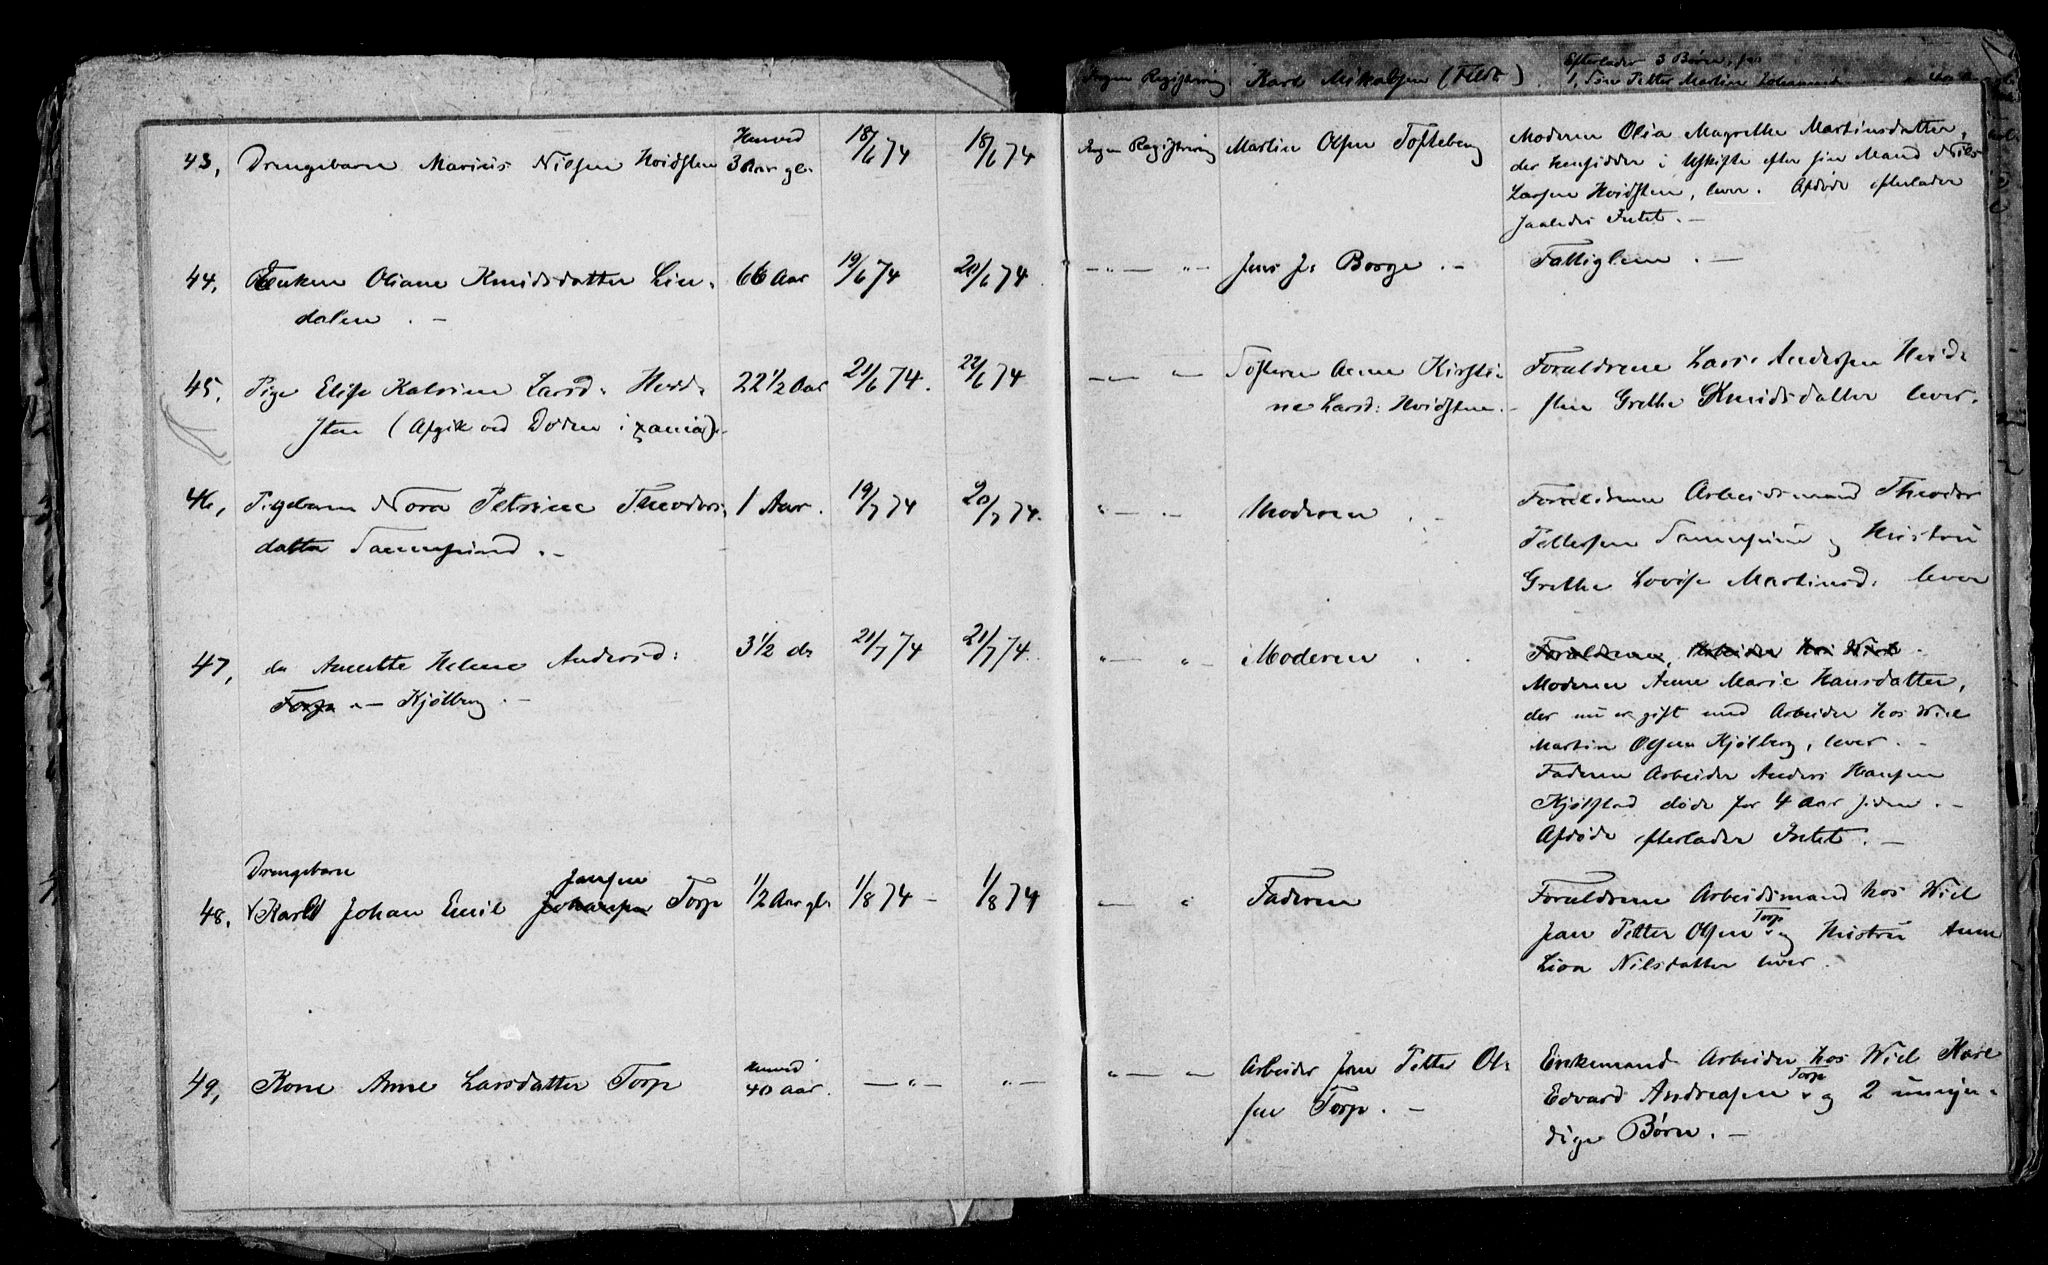 Ingen Registrering Karl Mikalsen (Feldt) Efterlader 3 Børn,
1, Søn Petter Martin Johannes
43, Drengebarn Marius Nilsen Hvidsten
Henved
3 Aar gl.
18/6 74
18/6 74
Ingen Registrering
Martin Olsen Tofteberg
Moderen Olia Magrethe Martinsdatter,
der hensidder i Uskifte efter sin Mand Nils
Larsen Hvidsten, lever. Afdøde efterlader
saaledes Intet. —
44, Enken Oliane Knudsdatter Lin-
dalen. —
66 Aar
19/6 74
20/6 74
— " — " —
Jens Js Borge. —
Fattiglem. —
45, Pige Elise Katrine Larsd: Hvid-
sten (Afgik ved Døden i Xania). —
22 1/2 Aar
21/6 74.
22/6 74
— " — " —
Søsteren Anne Kirsti-
ne Larsd: Hvidsten. —
Forældrene Lars Andersen Hvid-
sten Grethe Knudsdatter lever.
46, Pigebarn Nora Petrine Theodors-
datter Sannesund. —
1 Aar.
19/7 74
20/7 74.
" — " —
Moderen. —
Forældrene Arbeidsmand Theodor
Pettersen Sannesund og Hustru
Grethe Lovise Martinsd: lever
47, do Annette Helene Andersd:
Torp — Kjølberg. —
3 1/2 do
21/7 74
21/7 74.
" — " —
Moderen.
Forældrene, Arbeider hos Wiel.
Moderen Anne Marie Hansdatter,
der nu er gift med Arbeider hos Wiel
Martin Olsen Kjølberg, lever. —
Faderen Arbeider Anders Hansen
Kjølstad døde for 4 Aar siden. —
Afdøde efterlader Intet. —
48, Drengebarn
Karl Johan Emil Johansen Jansen Torp
1/2 Aar gl.
1/8 74 —
1/8 74
— "
Faderen
Forældrene Arbeidsmand hos Wiel
Jean Petter Olsen Torp og Hustru Anne
Lisa Nilsdatter lever.
49, Kone Anne Larsdatter Torp
henved
40 Aar.
— " —
" —
" — " —
Arbeider Jean Petter Ol-
sen Torp. —
Enkemand Arbeider hos Wiel Karl
Edvard Andreasen Torp og 2 umyn-
dige Børn. —